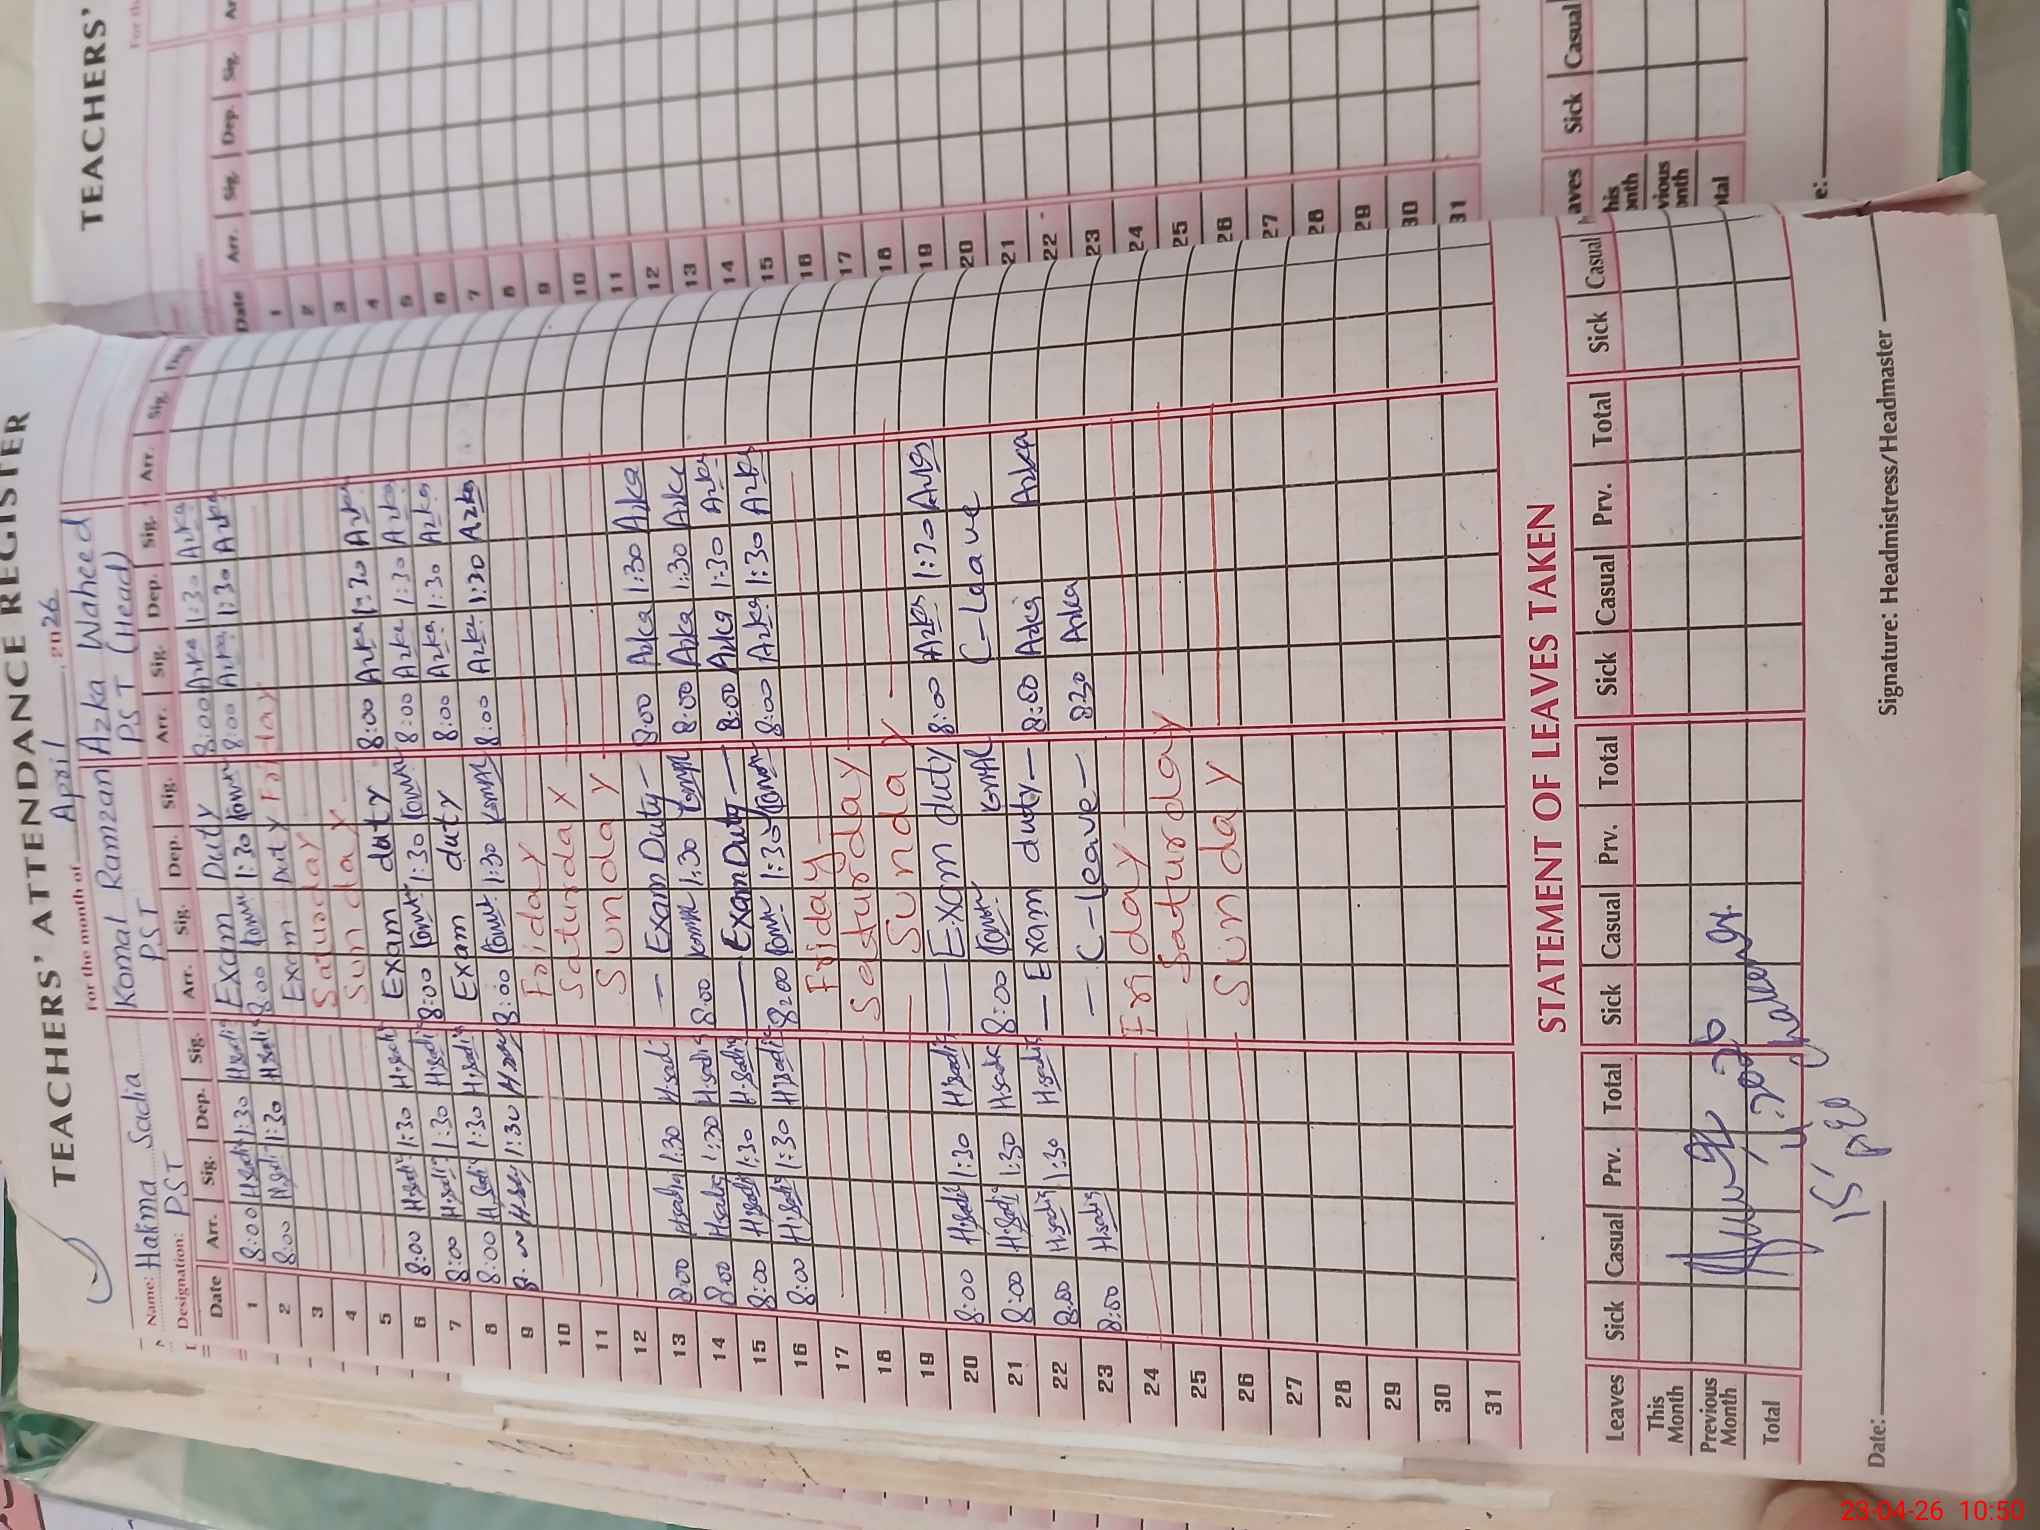 TEACHERS' ATTENDANCE REGISTER
For the month of April 2026
Name: Halima Sadia Komal Ramzan Azka Waheed
Designation: PST PST PST (Head)
Date Arr. Sig. Dep. Sig. Arr. Sig. Dep. Sig. Arr. Sig. Dep. Sig. Arr. Sig. Dep.
1 8:00 H.sadi 1:30 H.sadi Exam Duty 8:00 Azka 1:30 Azka
2 8:00 H.sadi 1:30 H.sadi 8:00 Komal 1:30 Komal 8:00 Azka 1:30 Azka
3 Exam Duty Friday
4 Saturday
5 Sunday
6 8:00 H.sadi 1:30 H.sadi Exam duty 8:00 Azka 1:30 Azka
7 8:00 H.sadi 1:30 H.sadi 8:00 Komal 1:30 Komal 8:00 Azka 1:30 Azka
8 8:00 H.sadi 1:30 H.sadi Exam duty 8:00 Azka 1:30 Azka
9 1:30 8:00 Komal 1:30 Komal 8:00 Azka 1:30 Azka
10 Friday
11 Saturday
12 Sunday
13 8:00 Hsadia 1:30 H.sadi — Exam Duty — 8:00 Azka 1:30 Azka
14 8:00 Hsadia 1:30 H.sadia 8:00 Komal 1:30 Komal 8:00 Azka 1:30 Azka
15 8:00 H.sadia 1:30 H.sadia — Exam Duty — 8:00 Azka 1:30 Azka
16 8:00 H.sadia 1:30 H.sadia 8:00 Komal 1:30 Komal 8:00 Azka 1:30 Azka
17 Friday
18 Saturday
19 Sunday
20 8:00 H.sadia 1:30 H.sadia — Exam duty 8:00 Azka 1:30 Azka
21 8:00 H.sadia 1:30 Hsadia 8:00 Komal Komal C-Leave
22 8:00 Hsadia 1:30 Hsadia — Exam duty — 8:00 Azka Azka
23 8:00 Hsadia — C-leave — 830 Azka
24 Friday
25 Saturday
26 Sunday
27
28
29
30
31
STATEMENT OF LEAVES TAKEN
Leaves Sick Casual Prv. Total Sick Casual Prv. Total Sick Casual Prv. Total Sick Casual
This Month
Previous Month
Total
Date: Signature: Headmistress/Headmaster
TEACHERS'
Date Arr. Sig. Dep. Sig. Ar
1
2
3
4
5
6
7
8
9
10
11
12
13
14
15
16
17
18
19
20
21
22
23
24
25
26
27
28
29
30
31
Sick Casual
23-04-26 10:50